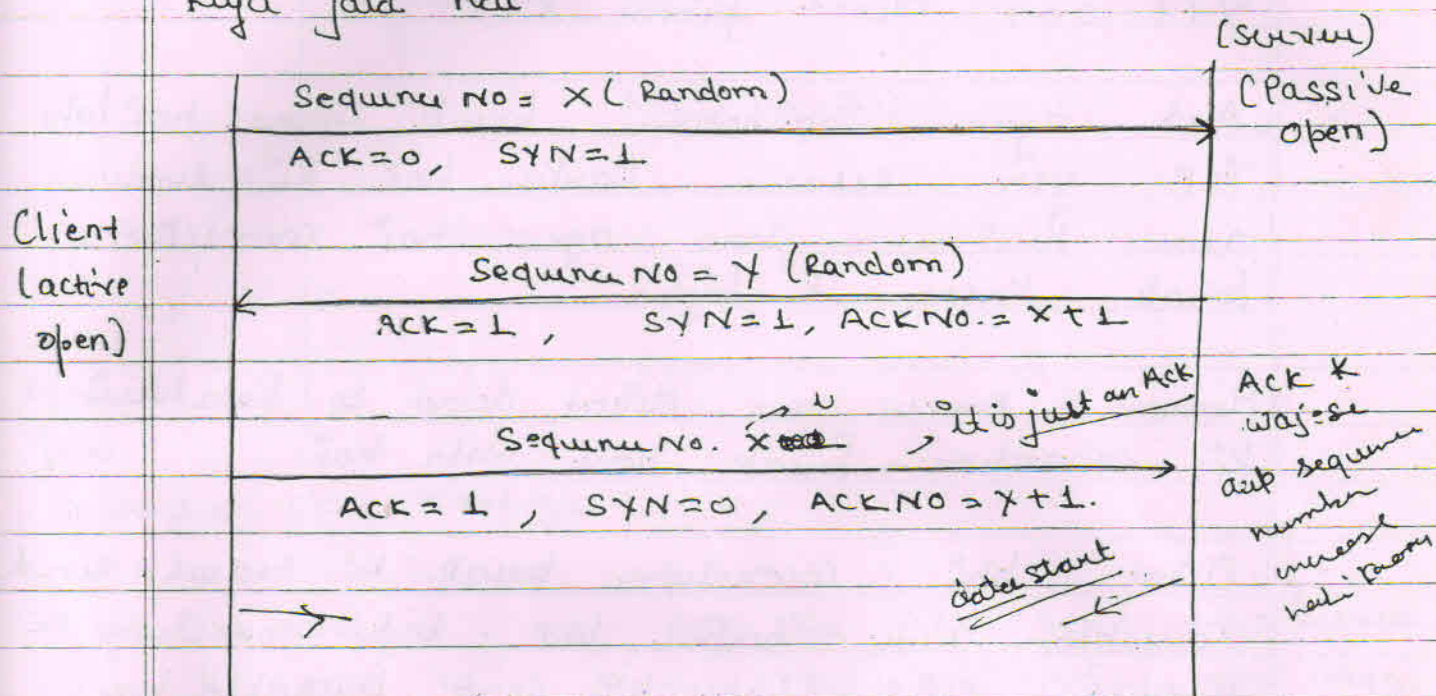 kiya jata hai
(Server)
(Passive
open)
Sequence No = X (Random)
ACK = 0, SYN = 1
Client
(active
open)
Sequence No = Y (Random)
ACK = 1, SYN = 1, ACK NO. = X+1
Sequence No. X , it is just an Ack
ACK = 1, SYN = 0, ACK NO = Y+1.
Ack K
wajse
aap sequence
number
increase
nahi karoy
data start